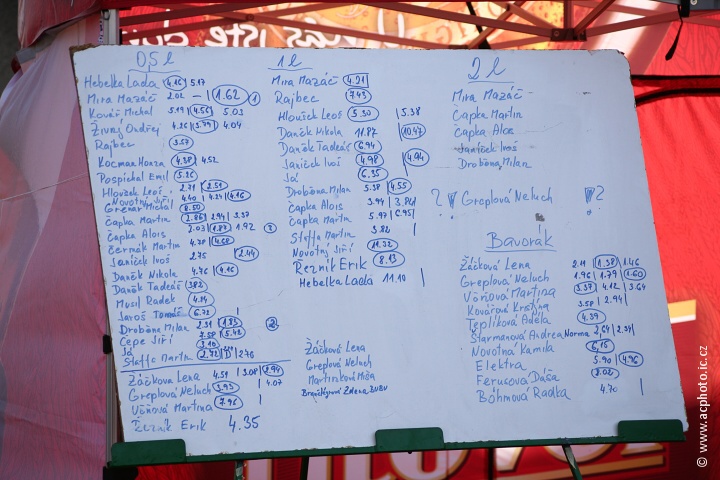 0,5 l
Hebelka Lada 4.16 5.17
Mira Mazáč 2.02 — 1.62 1
Kovář Michal 5.19 4.56 5.03
Živný Ondřej 4.26 3.79 4.04
Rajbec 3.57
Kocman Honza 4.38 4.52
Pospíchal Emil 5.26
Hlouzek Leoš 2.71 2.51
Novotný Jiří 4.40 4.24 4.16
Michal 8.50
Čapka Martin 2.86 2.94 3.37
Čapka Alois 2.03 1.87 1.92 3
Čermák Martin 4.78 4.68
Janíček Ivoš 2.75 2.44
Daněk Nikola 4.76 4.16
Daněk Tadeáš 3.82
Musil Radek 4.24
Jaroš Tomáš 6.72
Drobčna Milan 2.31 1.85 2
Čepe Jiří 7.58 5.42
Já 3.10
Staffa Martin 2.72 2.76
Žáčková Lena 4.51 3.08 2.94
Greplová Neluch 3.93 4.07
Váňová Martina 7.96
Řezník Erik 4.35
1 l
Mira Mazáč 4.21
Rajbec 7.43
Hloušek Leoš 5.30 5.38
Daněk Nikola 11.87 10.47
Daněk Tadeáš 6.94
Janíček Ivoš 4.98 4.94
Já 6.35
Drobčna Milan 5.38 4.55
Čapka Alois 3.94 3.86
Čapka Martin 5.97 6.95
Staffa Martin 3.82
Novotný Jiří 11.32
Řezník Erik 8.13
Hebelka Lada 11.10
Žáčková Lena
Greplová Neluch
Martinková Míša
Zdena BUBU
2 l
Mira Mazáč
Čapka Martin
Čapka Aloe
Janíček Ivoš
Drobčna Milan
? ! Greplová Neluch ! ?
Bavorák
Žáčková Lena 2.11 1.38 1.46
Greplová Neluch 1.96 1.79 1.60
Váňová Martina 3.37 4.12 3.64
Kovářová Kristina 3.58 2.94
Teplíková Adéla 4.39
Šťarmanová Andrea Norma 2.64 2.34
Novotná Kamila 6.15
Elektra 5.90 4.96
Ferusová Dáša 2.02
Böhmová Radka 4.70
© www.acphoto.ic.cz